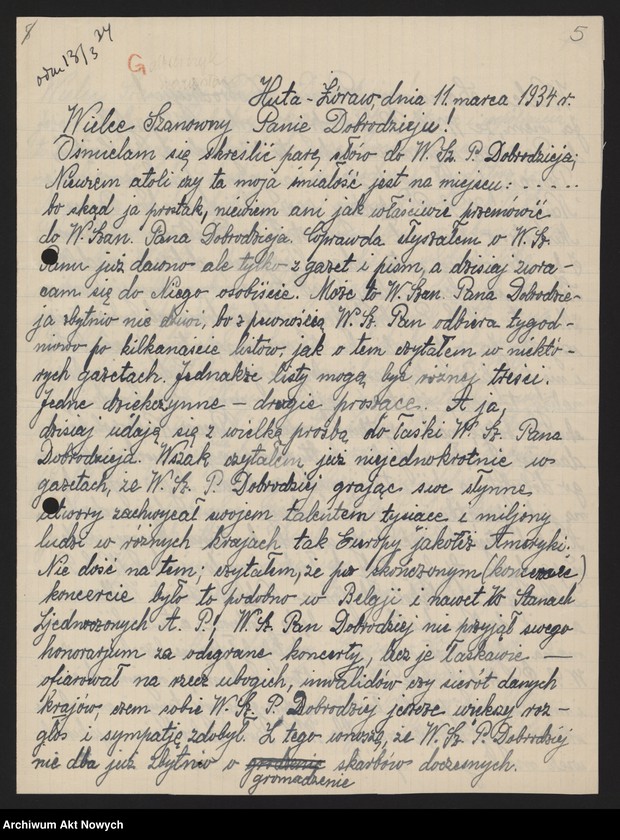 5
odm 13/3 34
G
Huta-Żoraw, dnia 11. marca 1934 r.
Wielce Szanowny Panie Dobrodzieju!
Ośmielam się skreślić parę słów do W. Sz. P. Dobrodzieja;
Niewiem atoli czy ta moja śmiałość jest na miejscu: . . . . .
bo skąd ja prostak, niewiem ani jak właściwie przemówić
do W. Szan. Pana Dobrodzieja. Coprawda słyszałem o W. Sz.
Panu już dawno ale tylko z gazet i pism, a dzisiaj zwra-
cam się do Niego osobiście. Może to W. Szan. Pana Dobrodzie-
ja zbytnio nie dziwi, bo z pewnością W. Sz. Pan odbiera tygod-
niowo po kilkanaście listów, jak o tem czytałem w niektó-
rych gazetach. Jednakże listy mogą być różnej treści.
Jedne dziękczynne – drugie proszące. A ja,
dzisiaj udają się z wielką prośbą do łaski W. Sz. Pana
Dobrodzieja. Wszak czytałem już niejednokrotnie w
gazetach, że W. Sz. P. Dobrodziej grając swe słynne
utwory zachwycał swojem talentem tysiące i miljony
ludzi w różnych krajach tak Europy jakoteż Ameryki.
Na dość na tem; czytałem, że po skończonym
koncercie było to podobno w Belgji i nawet w Stanach
Zjednoczonych A. P.! W. Sz. Pan Dobrodziej nie przyjął swego
honorarjum za odegrane koncerty, lecz je łaskawie –
ofiarował na rzecz ubogich, inwalidów czy sierót danych
krajów, czem sobie W. Sz. P. Dobrodziej jeszcze większy roz-
głos i sympatję zdobył. Z tego wnoszę, że W. Sz. P. Dobrodziej
nie dba już zbytnio o skarbów doczesnych.
gromadzenie
Archiwum Akt Nowych